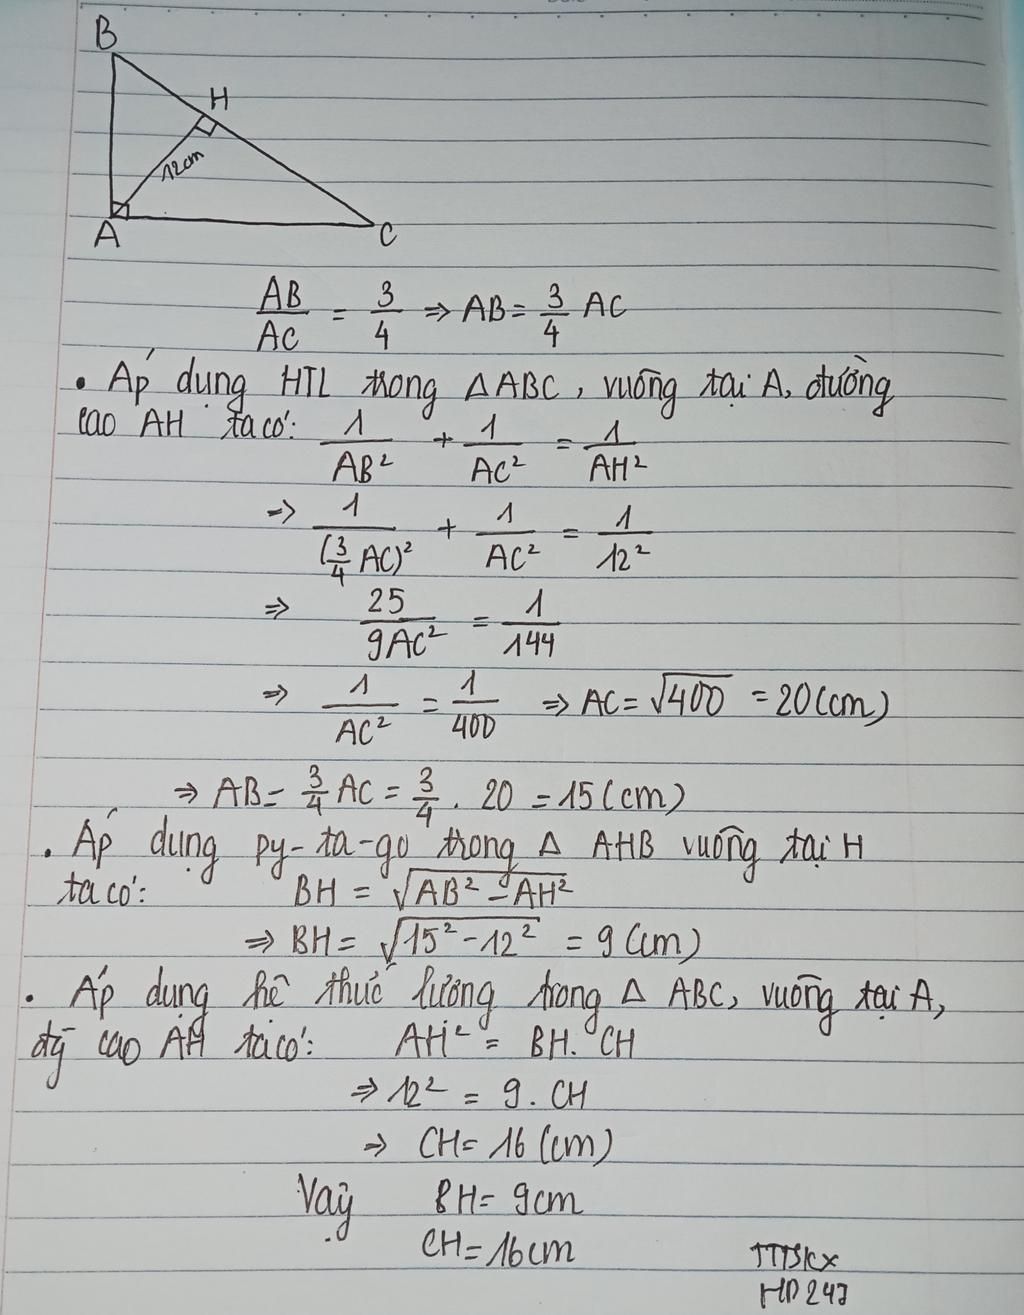 B
H
12cm
A
C
AB/AC = 3/4 ⇒ AB = 3/4 AC
• Áp dụng HTL trong △ABC, vuông tại A, đường
cao AH ta có: 1/AB² + 1/AC² = 1/AH²
→ 1/(3/4 AC)² + 1/AC² = 1/12²
⇒ 25/9AC² = 1/144
⇒ 1/AC² = 1/400 ⇒ AC = √400 = 20(cm)
⇒ AB = 3/4 AC = 3/4 . 20 = 15(cm)
• Áp dụng py-ta-go trong △ AHB vuông tại H
ta có: BH = √AB² - AH²
⇒ BH = √15² - 12² = 9(cm)
• Áp dụng hệ thức lượng trong △ ABC, vuông tại A,
đg cao AH ta có: AH² = BH. CH
⇒ 12² = 9. CH
⇒ CH = 16 (cm)
Vậy BH = 9cm
CH = 16cm
HD247